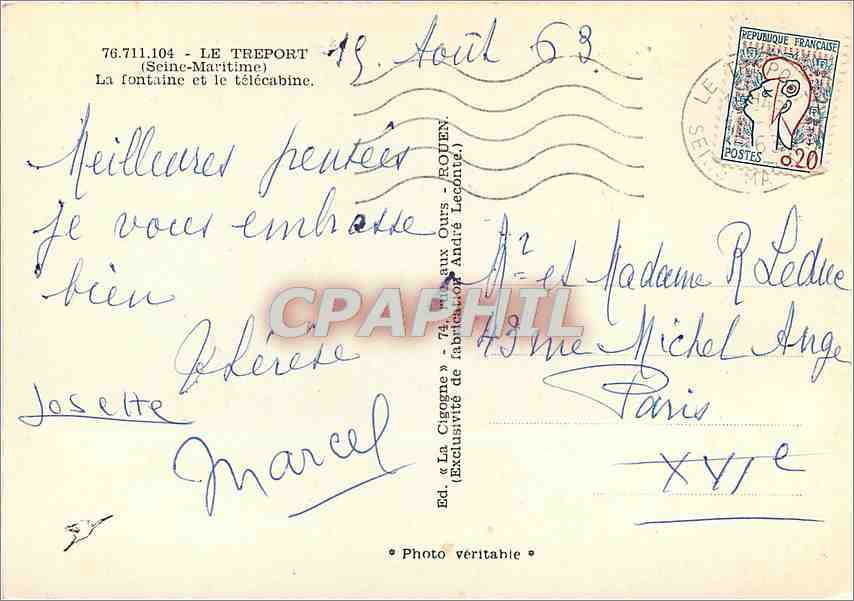 76.711.104 - LE TREPORT
(Seine-Maritime)
La fontaine et le télécabine.
15 Août 63
REPUBLIQUE FRANÇAISE
POSTES 0,20
LE TREPORT
SEINE MA
Meilleures pensées
je vous embrasse
bien
Thérèse
Josette
Marcel
Ed. « La Cigogne » - 74, rue aux Ours - ROUEN.
(Exclusivité de fabrication André Leconte.)
CPAPHIL
Mr et Madame R Leduc
43 rue Michel Ange
Paris
XVIe
* Photo véritable *